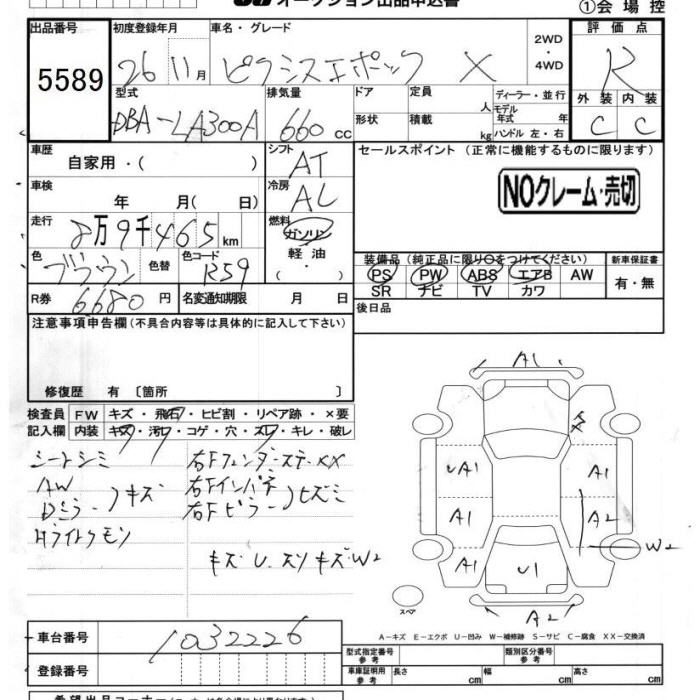 オークション出品申込書
①会場控
出品番号 初度登録年月 車名・グレード 2WD・4WD 評価点
5589 26 11月 ピクシスエポック X R
型式 排気量 ドア 定員 人 ディーラー・並行 外装 内装
DBA-LA300A 660 cc 形状 積載 kg モデル年式 年 ハンドル 左・右 C C
車歴 自家用・( ) シフト AT セールスポイント (正常に機能するものに限ります)
車検 年 月( 日) 冷房 AL NOクレーム・売切
走行 8万9千465km 燃料 ガソリン 軽油・
色 ブラウン 色替 色コード R59 装備品(純正品に限り○をつけてください) 新車保証書
PS PW ABS エアB AW 有・無
SR ナビ TV カワ
R券 6680円 名変通知期限 月 日 後日品
注意事項申告欄(不具合内容等は具体的に記入して下さい)
修復歴 有 〔箇所 〕
検査員 FW キズ・飛石・ヒビ割・リペア跡・×要
記入欄 内装 キズ・汚レ・コゲ・穴・スレ・キレ・破レ
シートシミ 右Fフェンダーステーxx
AW 右Fインパネ
Dミラー キズ 右Fピラー ヒズミ
Hライトクモリ
キズ U.スリキズ・W2
A1
UA1 A1
A1 A2
W2
A1 U1
スペア
A2
A-キズ E-エクボ U-凹み W-補修跡 S-サビ C-腐食 XX-交換済
車台番号 1032226
型式指定番号 参考 類別区分番号 参考
登録番号 車庫証明用 参考 長さ cm 幅 cm 高さ cm